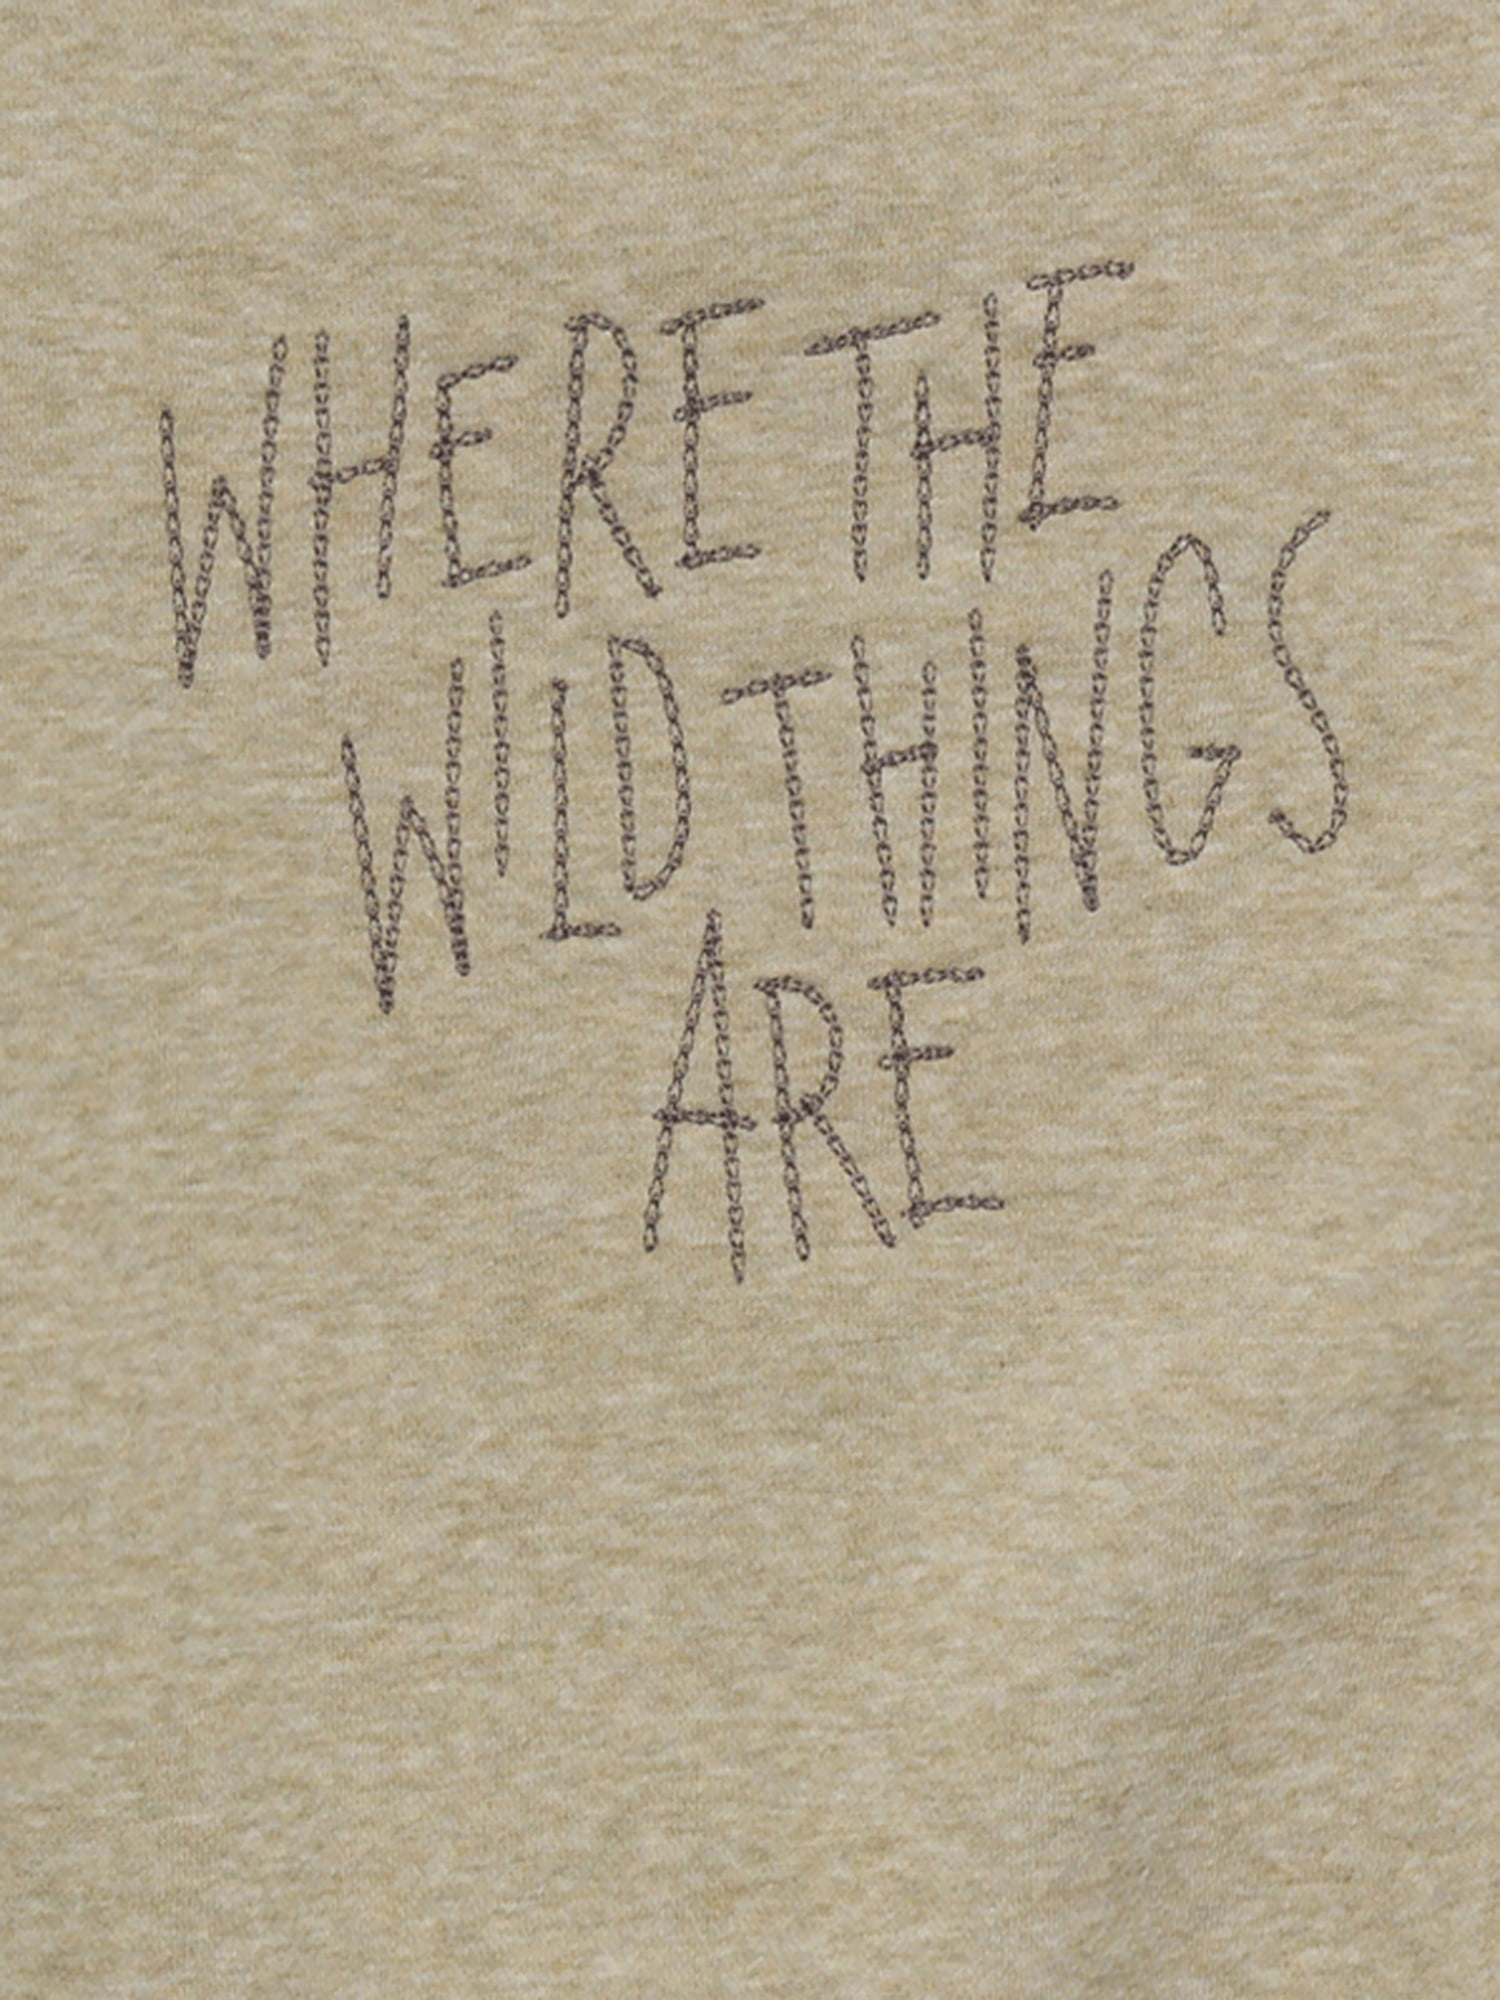 WHERE THE
WILD THINGS
ARE